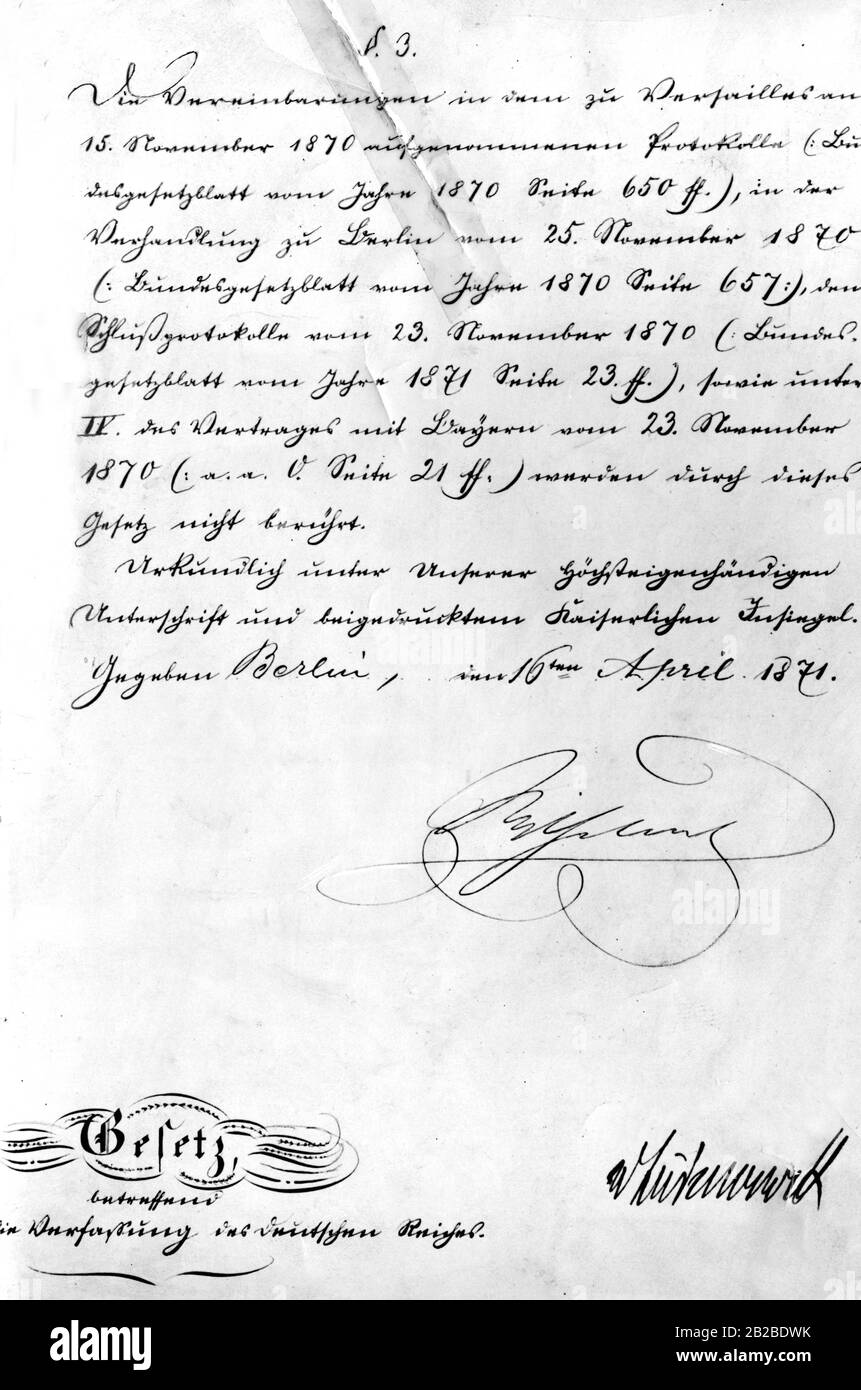 §. 3.
Die Vereinbarungen in dem zu Versailles am
15. November 1870 aufgenommenen Protokolle (: Bu
desgesetzblatt vom Jahre 1870 Seite 650 ff.), in der
Verhandlung zu Berlin vom 25. November 1870
(: Bundesgesetzblatt vom Jahre 1870 Seite 657:), dem
Schlußprotokolle vom 23. November 1870 (: Bundes-
gesetzblatt vom Jahre 1871 Seite 23 ff.), sowie unter
IV. des Vertrages mit Bayern vom 23. November
1870 (: a. a. O. Seite 21 ff:) werden durch dieses
Gesetz nicht berührt.
Urkundlich unter Unserer Höchsteigenhändigen
Unterschrift und beigedrucktem Kaiserlichen Insiegel.
Gegeben Berlin, den 16ten April 1871.
Wilhelm
alamy
Gesetz,
betreffend
die Verfassung des Deutschen Reiches.
alamy
Image ID: 2B2BDWK
www.alamy.com